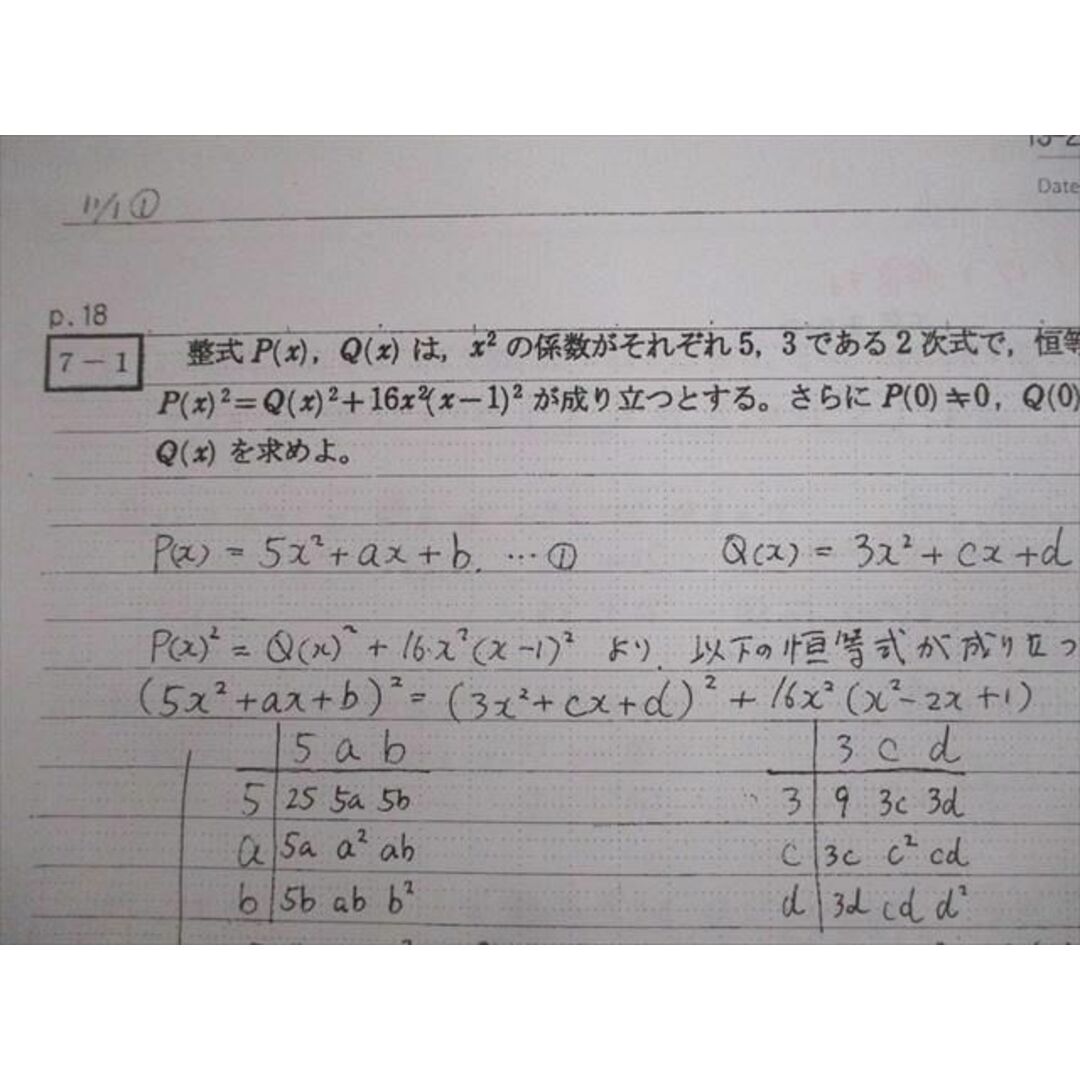 Date
11/1 ①
p.18
7－1 整式 P(x), Q(x) は, x² の係数がそれぞれ 5, 3 である 2 次式で, 恒等
P(x)²=Q(x)²+16x²(x−1)² が成り立つとする。さらに P(0)≒0, Q(0)
Q(x) を求めよ。
P(x) = 5x²+ax+b. … ① Q(x) = 3x²+cx+d
P(x)² = Q(x)² + 16·x²(x−1)² より. 以下の恒等式が成り立つ
(5x²+ax+b)² = (3x²+cx+d)² + 16x²(x²−2x+1)
5 a b 3 c d
5 25 5a 5b 3 9 3c 3d
a 5a a² ab c 3c c² cd
b 5b ab b² d 3d cd d²